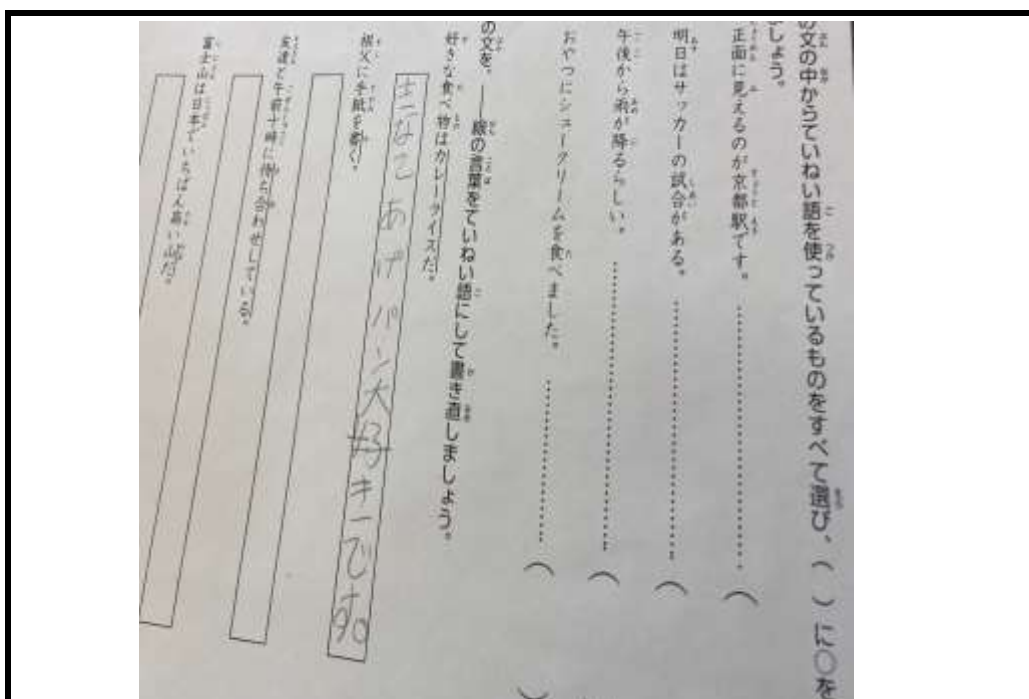 の文の中からていねい語を使っているものをすべて選び、（　）に○を
ましょう。
正面に見えるのが京都駅です。
明日はサッカーの試合がある。
午後から雨が降るらしい。
おやつにシュークリームを食べました。
の文を、——線の言葉をていねい語にして書き直しましょう。
好きな食べ物はカレーライスだ。
きなこあげパン大好キーです。
祖父に手紙を書く。
友達と午前十時に待ち合わせしている。
富士山は日本でいちばん高い山だ。